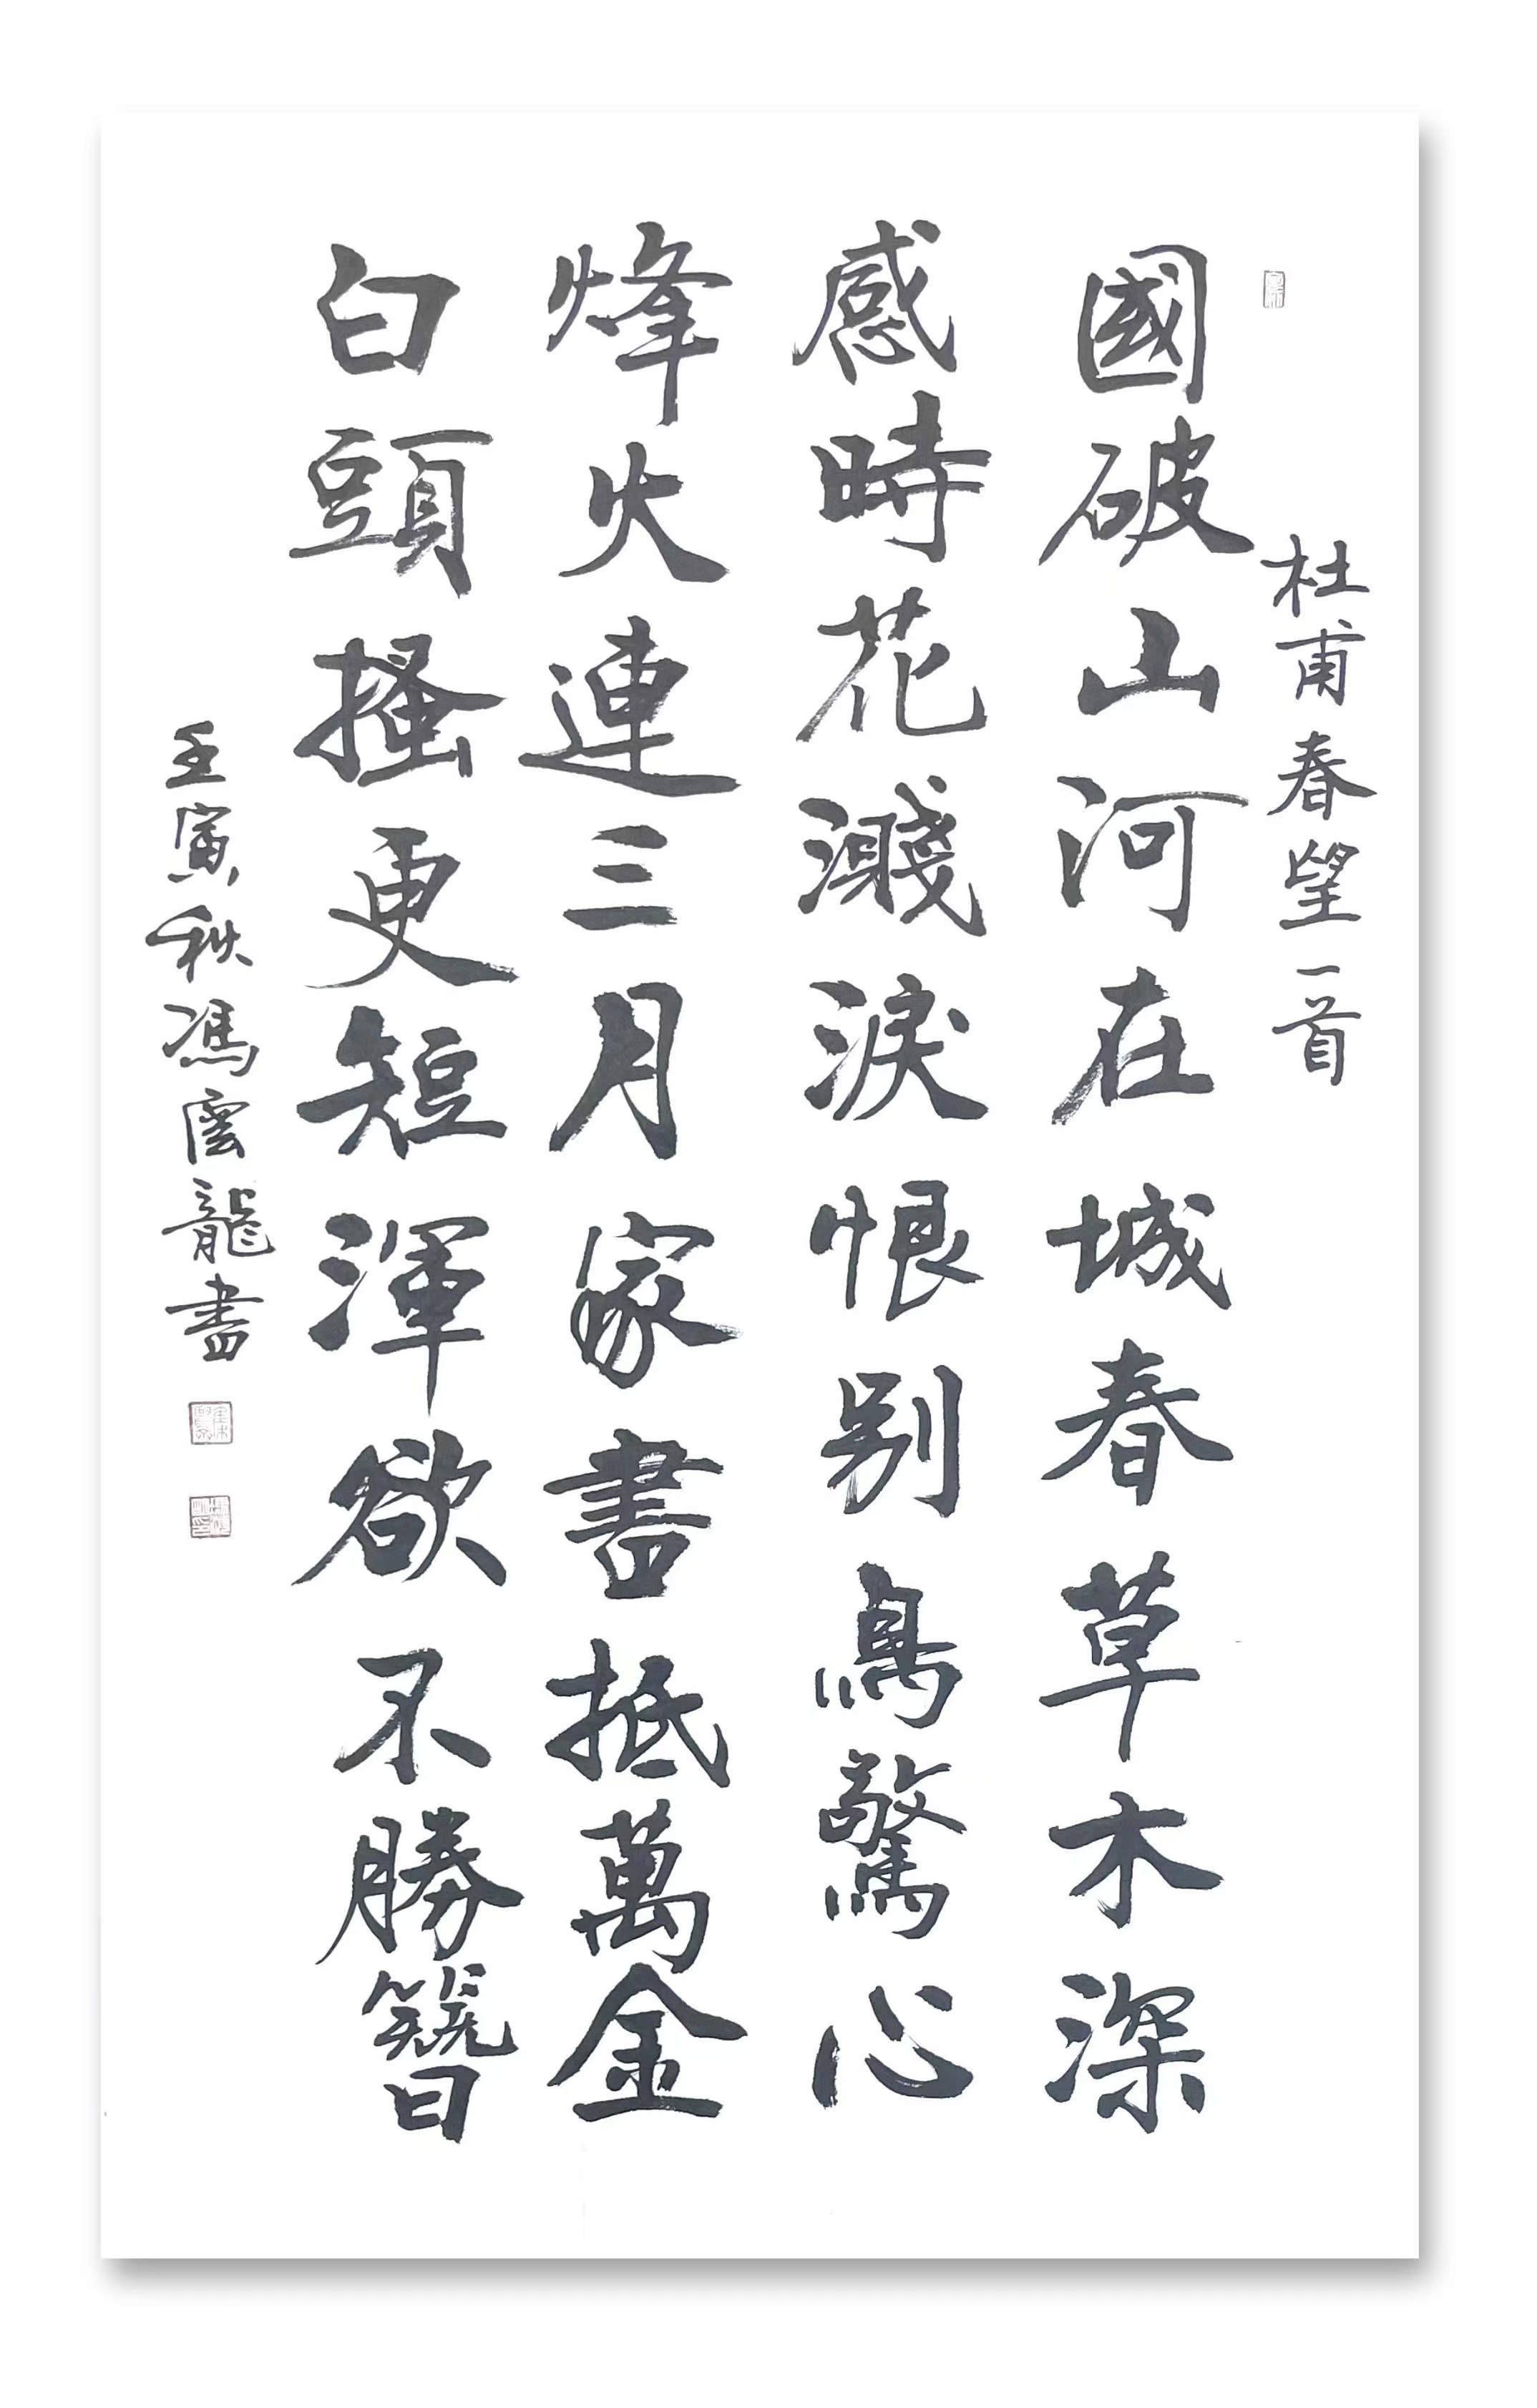 杜甫春望一首
國破山河在城春草木深
感時花濺淚恨别鳥驚心
烽火連三月家書抵萬金
白頭搔更短渾欲不勝簪
壬寅秋馮雲龍書